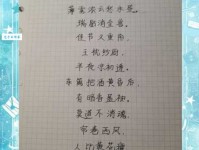 薄雾浓云愁永昼。
瑞脑消金兽。
佳节又重阳,
玉枕纱厨,
半夜凉初透。
东篱把酒黄昏后,
有暗香盈袖。
莫道不消魂,
帘卷西风,
人比黄花瘦